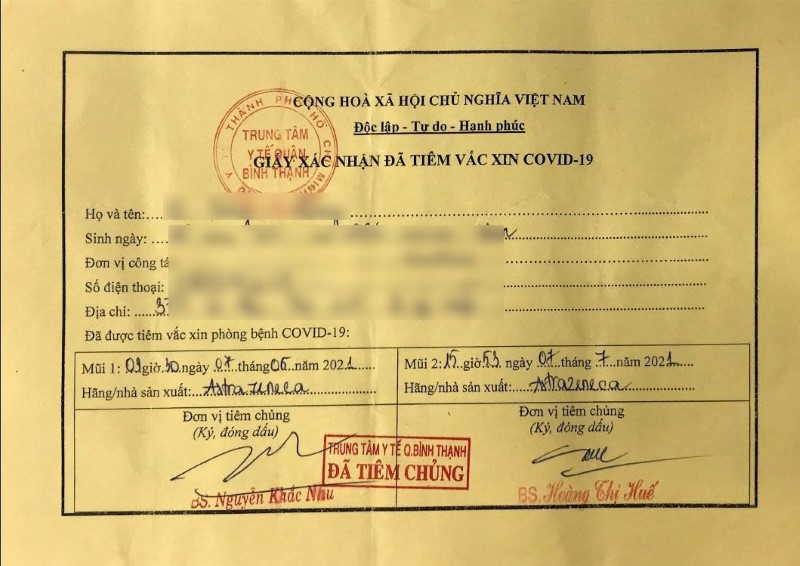 CỘNG HOÀ XÃ HỘI CHỦ NGHĨA VIỆT NAM
Độc lập - Tư do - Hanh phúc
THÀNH PHỐ HỒ CHÍ MINH
TRUNG TÂM
Y TẾ QUẬN
BÌNH THẠNH
GIẤY XÁC NHẬN ĐÃ TIÊM VẮC XIN COVID-19
Họ và tên:
Sinh ngày:
Đơn vị công tá
Số điện thoại:
Địa chỉ:
Đã được tiêm vắc xin phòng bệnh COVID-19:
Mũi 1: 09 giờ 30 ngày 07 tháng 05 năm 2021
Hãng/nhà sản xuất: AstraZeneca
Mũi 2: 15 giờ 53 ngày 07 tháng 7 năm 2021
Hãng/nhà sản xuất: AstraZeneca
Đơn vị tiêm chủng
(Ký, đóng dấu)
Đơn vị tiêm chủng
(Ký, đóng dấu)
TRUNG TÂM Y TẾ Q.BÌNH THẠNH
ĐÃ TIÊM CHỦNG
BS. Nguyễn Khắc Nhu
BS. Hoàng Thị Huế